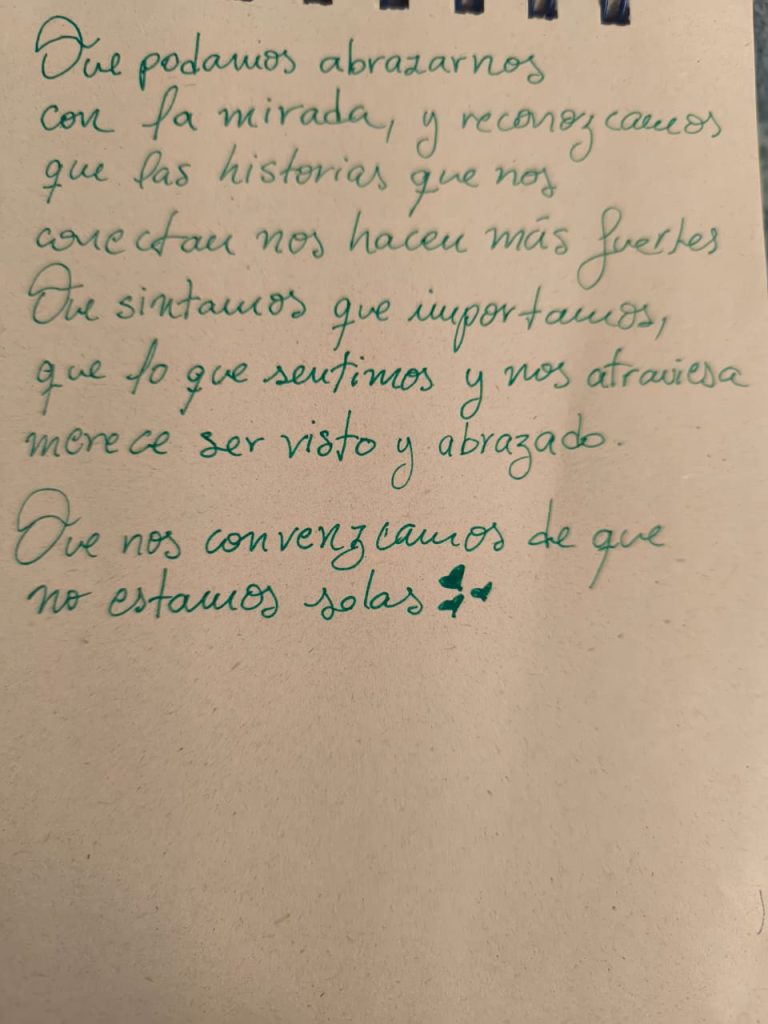 Que podamos abrazarnos
con la mirada, y reconozcamos
que las historias que nos
conectan nos hacen más fuertes
Que sintamos que importamos,
que lo que sentimos y nos atraviesa
merece ser visto y abrazado.
Que nos convenzcamos de que
no estamos solas